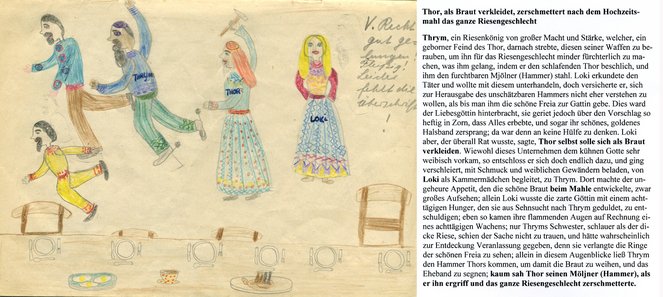 V. Recht
gut ge-
lungen!
Leider
fehlt die
THOR
LOKI
Thor, als Braut verkleidet, zerschmettert nach dem Hochzeits-
mahl das ganze Riesengeschlecht
Thrym, ein Riesenkönig von großer Macht und Stärke, welcher, ein
geborner Feind des Thor, darnach strebte, diesen seiner Waffen zu be-
rauben, um ihn für das Riesengeschlecht minder fürchterlich zu ma-
chen, was ihm gelang, indem er den schlafenden Thor beschlich, und
ihm den furchtbaren Mjölner (Hammer) stahl. Loki erkundete den
Täter und wollte mit diesem unterhandeln, doch versicherte er, sich
zur Herausgabe des unschätzbaren Hammers nicht eher verstehen zu
wollen, als bis man ihm die schöne Freia zur Gattin gebe. Dies ward
der Liebesgöttin hinterbracht, sie geriet jedoch über den Vorschlag so
heftig in Zorn, dass Alles erbebte, und sogar ihr schönes, goldenes
Halsband zersprang; da war denn an keine Hülfe zu denken. Loki
aber, der überall Rat wusste, sagte, Thor selbst solle sich als Braut
verkleiden. Wiewohl dieses Unternehmen dem kühnen Gotte sehr
weibisch vorkam, so entschloss er sich doch endlich dazu, und ging
verschleiert, mit Schmuck und weiblichen Gewändern beladen, von
Loki als Kammermädchen begleitet, zu Thrym. Dort machte der un-
geheure Appetit, den die schöne Braut beim Mahle entwickelte, zwar
großes Aufsehen; allein Loki wusste die zarte Göttin mit einem acht-
tägigen Hunger, den sie aus Sehnsucht nach Thrym geduldet, zu ent-
schuldigen; eben so kamen ihre flammenden Augen auf Rechnung ei-
nes achttägigen Wachens; nur Thryms Schwester, schlauer als der di-
cke Riese, schien der Sache nicht zu trauen, und hätte wahrscheinlich
zur Entdeckung Veranlassung gegeben, denn sie verlangte die Ringe
der schönen Freia zu sehen; allein in diesem Augenblicke ließ Thrym
den Hammer Thors kommen, um damit die Braut zu weihen, und das
Eheband zu segnen; kaum sah Thor seinen Möljner (Hammer), als
er ihn ergriff und das ganze Riesengeschlecht zerschmetterte.